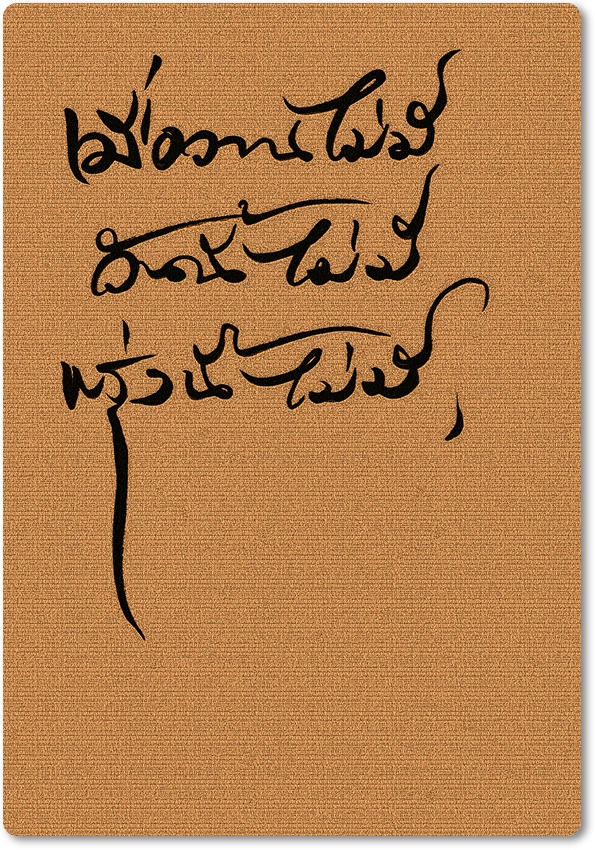 เมื่อวานไม่มี
วันนี้ไม่มี
พรุ่งนี้ไม่มี